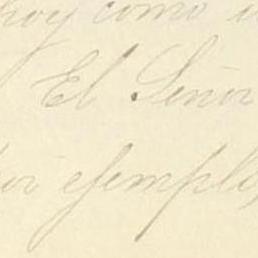 hoy como
El Señor
por ejemplo,